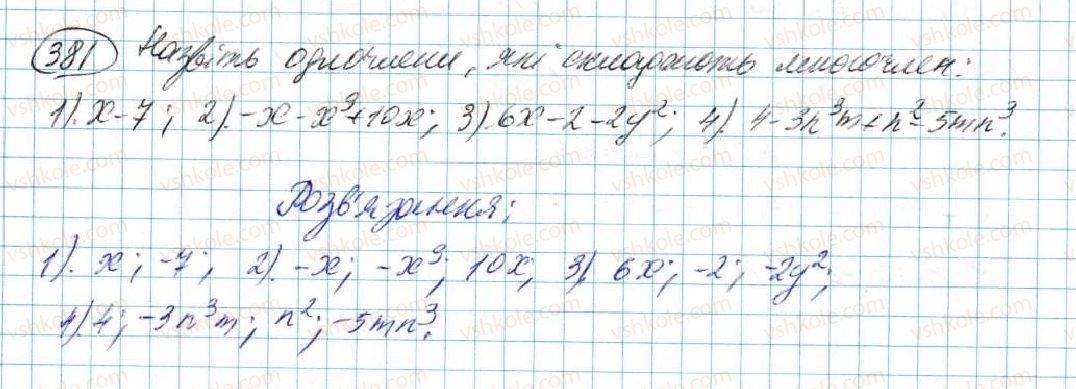 381 Назвіть одночлени, які складають многочлен:
1). x-7; 2). -x-x⁹+10x; 3) 6x-2-2y²; 4). 4-3n³m+n²-5mn³.
Розв'язання:
1). x; -7; 2). -x; -x⁹; 10x; 3) 6x; -2; -2y²;
4). 4; -3n³m; n²; -5mn³.